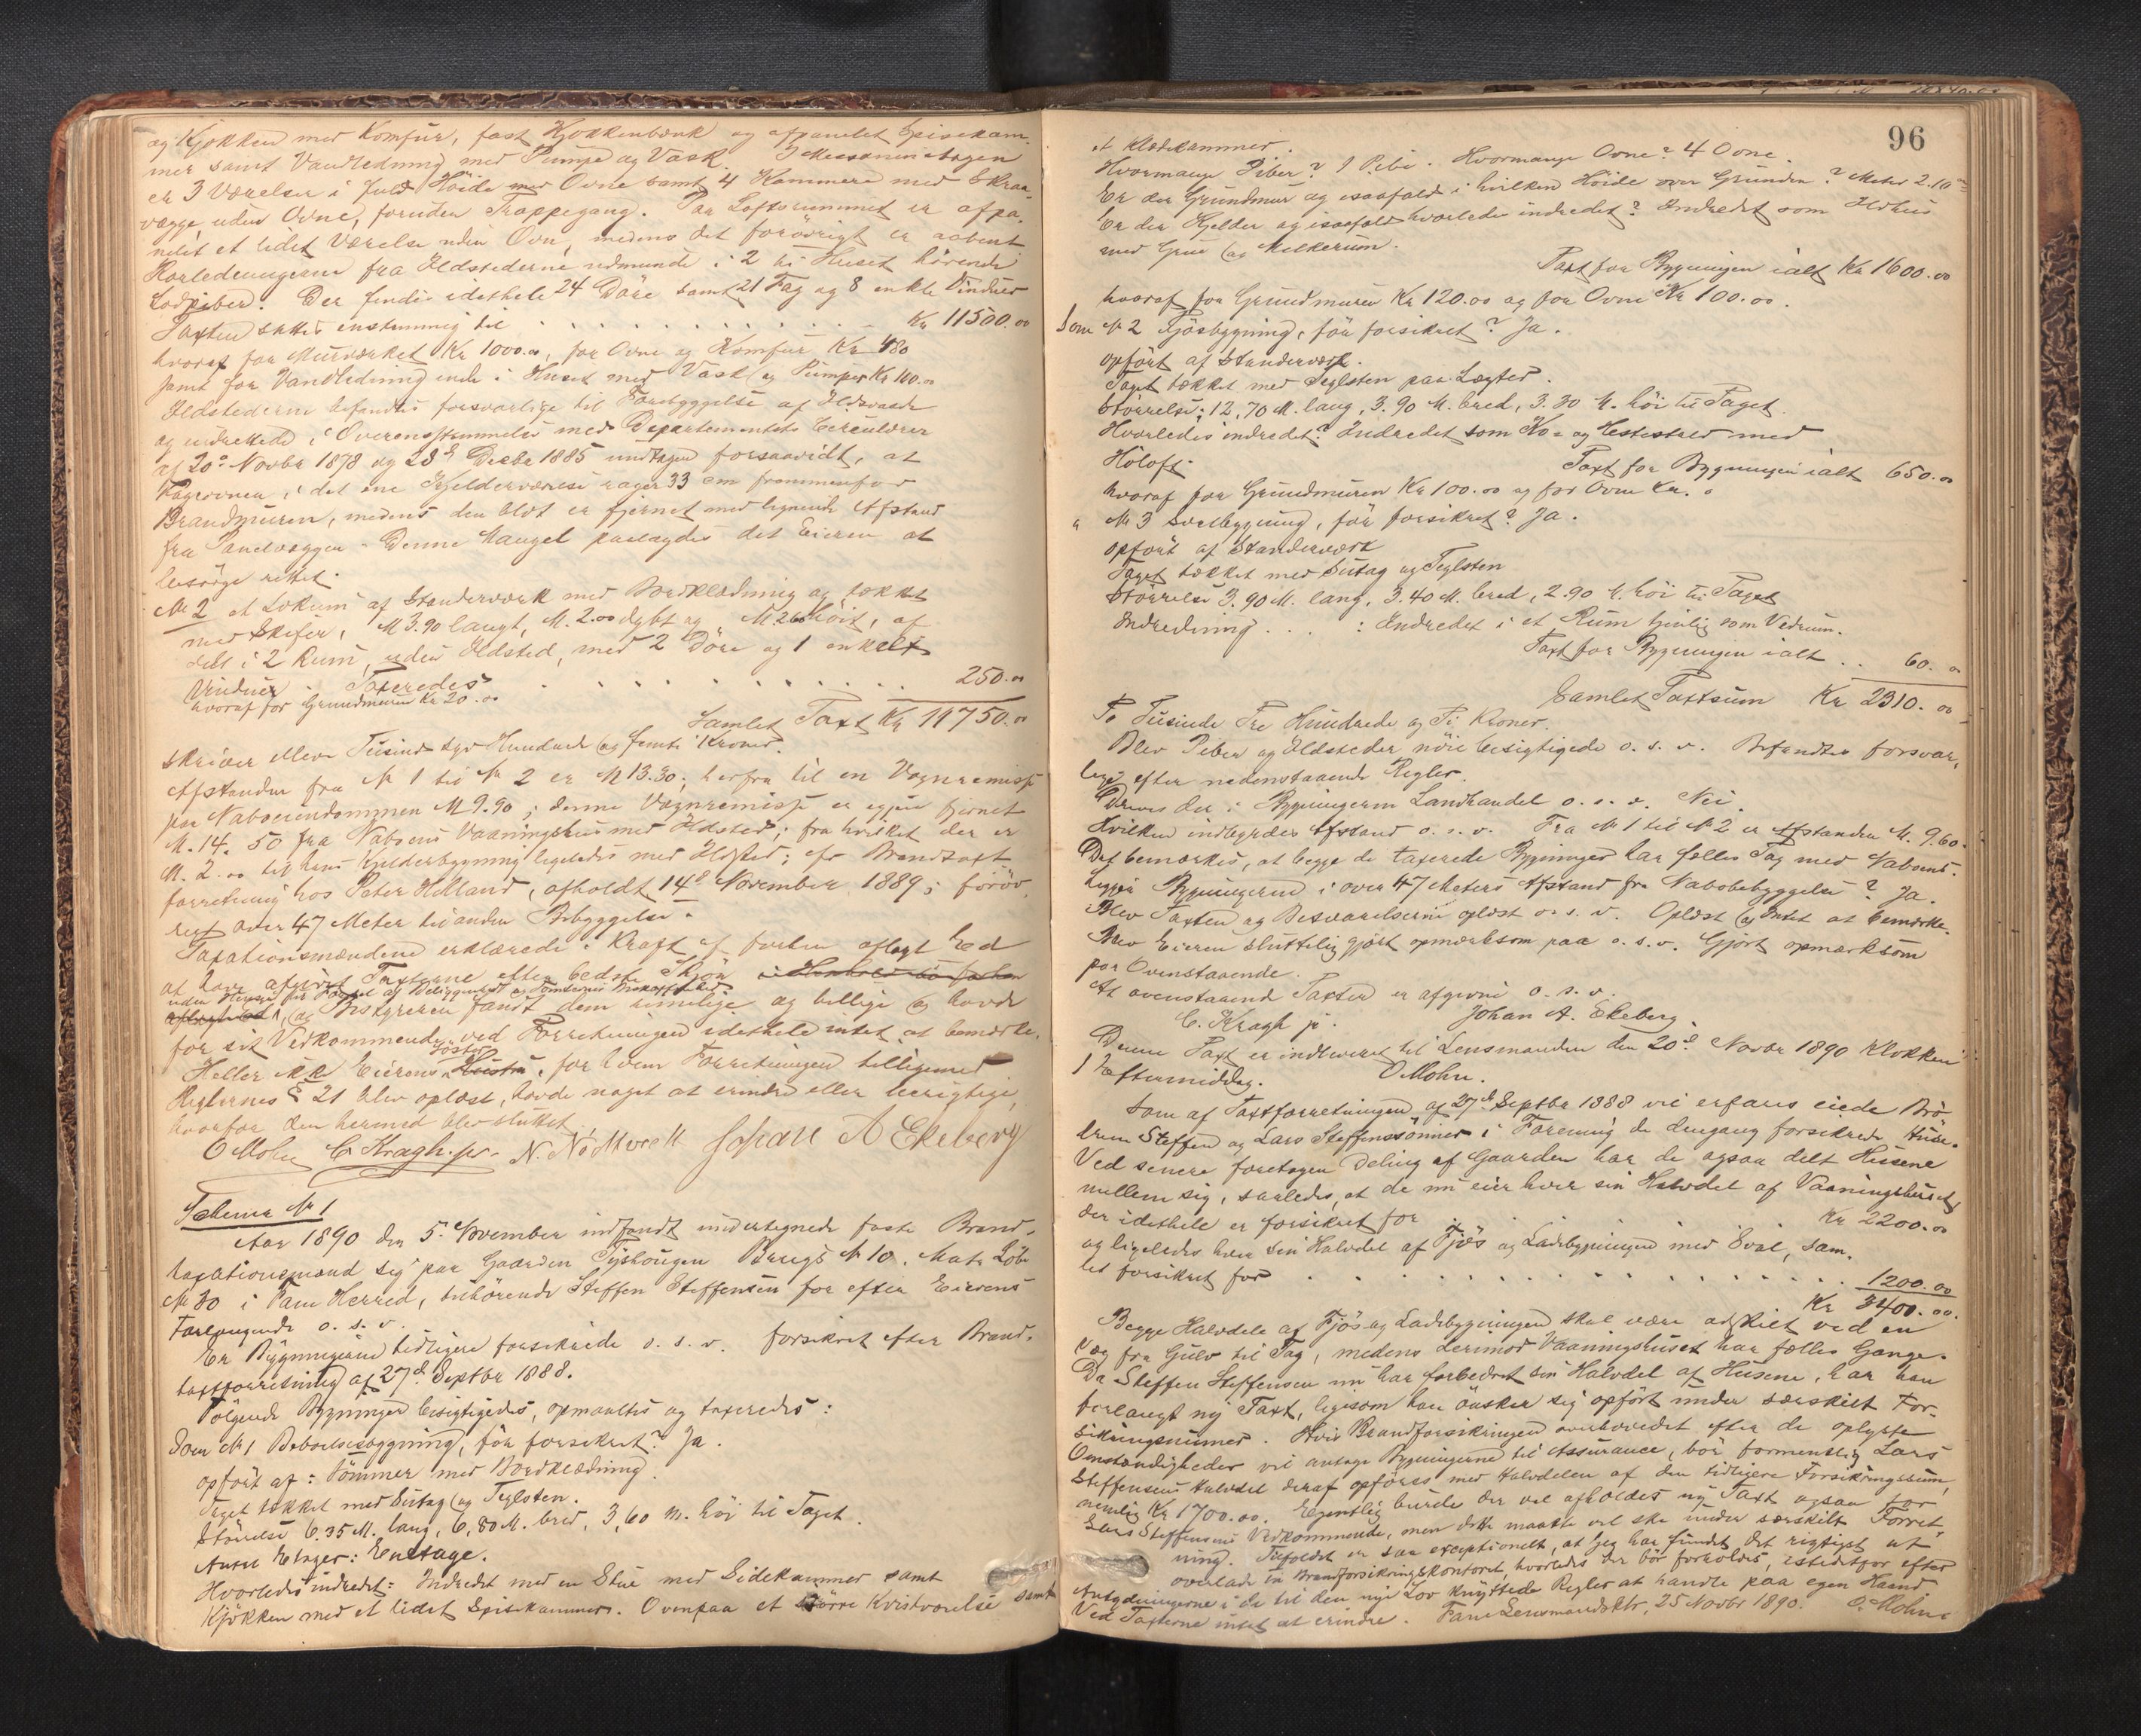 og Kjøkken med Komfur, fast Kjøkkenbænk og afpanelet Spisekam-
mer samt Vandledning med Pumpe og Vask. I Messaninetagen
er 3 Værelser i fuld Höide med Ovne samt 4 Kammere med Skraa-
vægge, uden Ovne, foruden Trappegang. Paa Loftsrummet er afpa-
nelet et lidet Værelse uden Ovn, medens det forövrigt er aabent
Rörledningerne fra Ildstederne udmunde i 2 til Huset hörende
Lodpiber. Der findes idethele 24 Döre samt 21 Fag og 8 enkle Vinduer
Taxten sattes enstemmig til . . . . . . . . . . Kr 11500.00
hvoraf for Murværket Kr 1000.00, for Ovne og Komfur Kr 480
samt for Vandledning inde i Huset med Vask og Pumper Kr 100.00
Ildstederne befandtes forsvarlige til Forebyggelse af Ildsvaade
og indrettede i Overensstemmelse med Departementets Circulærer
af 20de Novbr 1878 og 28de Decbr 1885 undtagen forsaavidt, at
Bagerovnen i det ene Kjelderværelse rager 33 cm frammenfor
Brandmuren, medens den blot er fjernet med lignende Afstand
fra Panelvæggen. Denne Mangel paalagdes det Eieren at
besörge rettet.
No 2 et Lokum af Standerværk med Bordklædning og tækket
med Skifer, M 3.90 langt, M. 2.00 dybt og M. 2.60 Höit, af
delt i 2 Rum, uden Ildsted, med 2 Döre og 1 enkelt
Vindue. Taxeredes . . . . . . . . . . 250.00
hvoraf for Grundmuren Kr 20.00
Samlet Taxt Kr 11750.00
skriver elleve Tusinde syv Hundrede og femti Kroner.
Afstanden fra No 1 til No 2 er M 13.30; herfra til en Vognremisse
paa Naboeiendommen M 9.90; denne Vognremisse er igjen fjernet
M. 14.50 fra Naboens Vaaningshus med Ildsted; fra hvilket der er
M. 2.00 til hans Kjelderbygning ligeledes med Ildsted; cfr Brandtaxt
forretning hos Peter Helland, afholdt 14de November 1889; foröv
rigt over 47 Meter til anden Bebyggelse.
Taxationsmændene erklærede i Kraft af forhen aflagt Ed
at have afgivet Taxterne efter bedste Skjön i Henhold til forhen
uden Hensyn til Fordel af Beliggenhed og Tomternes Beskaffenhed
aflagt Ed, og Bestyreren fandt dem rimelige og billige og havde
for sit Vedkommende ved Forretningen idethele intet at bemærke.
Heller ikke Eierens Söster Hustru, for hvem Forretningen tilligemed
Reglernes § 21 blev oplæst, havde noget at erindre eller berigtige,
hvorfor den hermed blev sluttet
O Mohn C Kragh jr. N. Johan A Ekeberg
Schema No 1
Aar 1890 den 5. November indfandt undertegnede faste Brand-
taxationsmænd sig paa Gaarden Tyshougen Brugs No 10. Matr. Löbe
No 30 i Fane Herred, tilhörende Steffen Steffensen for efter Eierens
Forlangende o. s. v.
Er Bygningerne tidligere forsikrede o. s. v. forsikret efter Brand-
taxtforretning af 27de Septbr 1888.
Fölgende Bygninger besigtigedes, opmaaltes og taxeredes:
Som No 1 Beboelsesbygning, för forsikret? Ja.
opfört af: Tömmer med Bordklædning.
Taget tækket med Sutag og Teglsten.
Störrelse 6.35 M. lang, 6,80 M. bred, 3,60 M. höi til Taget.
Antal Etager: En Etage.
Hvorledes indredet: Indredet med en Stue med Sidekammer samt
Kjökken med et lidet Spisekammer. Ovenpaa et större Kvistværelse samt
96
et Klædekammer.
Hvormange Piber? 1 Pibe. Hvormange Ovne? 4 Ovne.
Er der Grundmur og isaafald i hvilken Höide over Grunden? Meter 2.10
Er der Kjelder og isaafald hvorledes indredet? Indredet som Ildhus
med Grue og Melkerum.
Taxt for Bygningen ialt Kr 1600.00
hvoraf for Grundmuren Kr 120.00 og for Ovne Kr 100.00.
Som No 2 Fjösbygning, för forsikret? Ja.
opfört af Standerværk.
Taget tækket med Teglsten paa Lægter.
Störrelse: 12,70 M. lang, 3.90 M. bred, 3.30 M. höi til Taget.
Hvorledes indredet? Indredet som Ko- og Hestestald med
Höloft. Taxt for Bygningen ialt 650.00
hvoraf for Grundmuren Kr 100.00 og for Ovne Kr. 0
" No 3 Svalbygning, för forsikret? Ja.
opfört af Standerværk
Taget tækket med Sutag og Teglsten
Störrelse 3.90 M. lang, 3.40 M. bred, 2.90 M. höi til Taget
Indredning . . . : Indredet i et Rum tjenlig som Vedrum.
Taxt for Bygningen ialt . . 60.00
Samlet Taxtsum Kr 2310.00
To Tusinde Tre Hundrede og Ti Kroner.
Blev Piber og Ildsteder nöie besigtigede o. s. v. Befandtes forsvar-
lige efter nedenstaaende Regler.
Drives der i Bygningerne Landhandel o. s. v. Nei.
Hvilken indbyrdes Afstand o. s. v. Fra No 1 til No 2 er Afstanden M. 9.60.
Det bemærkes, at begge de taxerede Bygninger har fælles Tag med Naboens.
Ligger Bygningerne i over 47 Meters Afstand fra Nabobebyggelse? Ja.
Blev Taxten og Besvarelserne oplæst o. s. v. Oplæst og Intet at bemærke.
Blev Eieren sluttelig gjort opmærksom paa o. s. v. Gjort opmærksom
paa Ovenstaaende.
At ovenstaaende Taxter er afgivne o. s. v.
C. Kragh jr. Johan A. Ekeberg.
Denne Taxt er indleveret til Lensmanden den 20de Novbr 1890 Klokken
1 Eftermiddag. O Mohn.
Som af Taxtforretningen af 27de Septbr 1888 vil erfares eiede Brö-
drene Steffen og Lars Steffenssönner i Forening de dengang forsikrede Huse.
Ved senere foretagen Deling af Gaarden har de ogsaa delt Husene
mellem sig, saaledes, at de nu eier hver sin Halvdel af Vaaningshuset,
der idethele er forsikret for . . . Kr 2200.00
og ligeledes hver sin Halvdel af Fjös og Ladebygningen med Sval, sam-
let forsikret for . . . . . . . . . . 1200.00
Kr 3400.00.
Begge Halvdele af Fjös og Ladebygningen skal være adskilt ved en
Væg fra Gulv til Tag, medens derimod Vaaningshuset har fælles Gange.
Da Steffen Steffensen nu har forbedret sin Halvdel af Husene, har han
forlangt ny Taxt, ligesom han önsker sig opfört under særskilt For-
sikringsnumer. Hvis Brandforsikringen overhovedet efter de oplyste
Omstændigheder vil antage Bygningerne til Assurance, bör formentlig Lars
Steffensens Halvdel deraf opföres med Halvdelen af den tidligere Forsikringssum,
nemlig Kr 1700.00. Egentlig burde der vel afholdes ny Taxt ogsaa for
Lars Steffensens Vedkommende, men dette maatte vel ske under særskilt Forret-
ning. Tilfældet er saa exceptionelt, at jeg har fundet det rigtigst at
overlade til Brandforsikringskontoret, hvorledes der bör forholdes, istedetfor efter
Antydningerne i de til den nye Lov knyttede Regler at handle paa egen Haand
Ved Taxterne intet at erindre. Fane Lensmandsktr, 25 Novbr 1890. O. Mohn